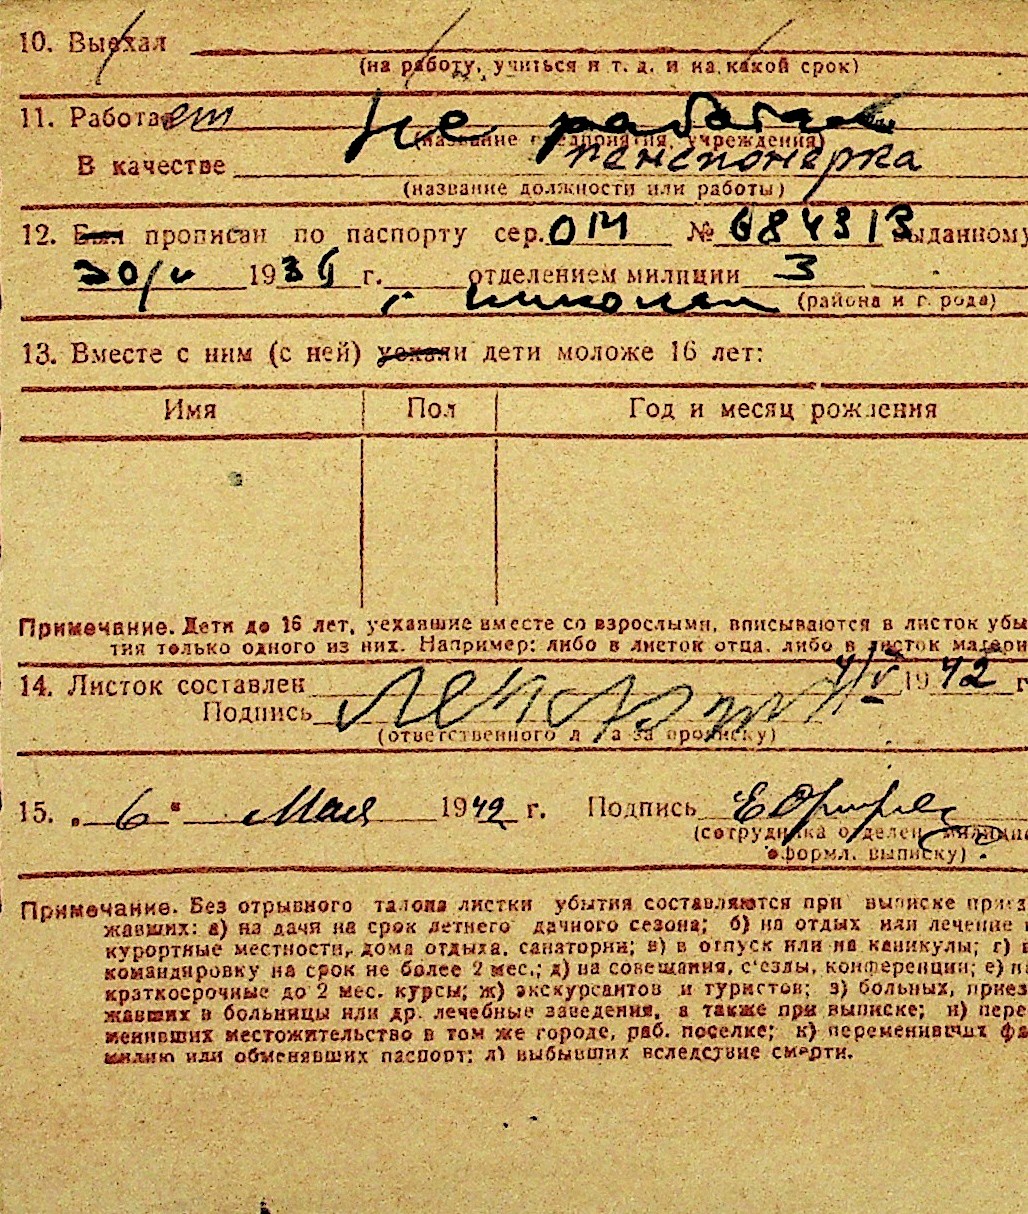 10. Выехал
(на работу, учиться и т. д. и на какой срок)
11. Работает не работает
(название предприятия, учреждения)
пенсионерка
В качестве
(название должности или работы)
12. Был прописан по паспорту сер. ОМ № 684313 выданному
30/V 1936 г. отделением милиции 3
г. (района и города)
13. Вместе с ним (с ней) уехали дети моложе 16 лет:
Имя Пол Год и месяц рождения
Примечание. Дети до 16 лет, уехавшие вместе со взрослыми, вписываются в листок убы-
тия только одного из них. Например: либо в листок отца, либо в листок матери
14. Листок составлен 4/V 1942 г
Подпись
(ответственного лица за прописку)
15. „6“ Мая 1942 г. Подпись
(сотрудника отделен. милиции
оформл. выписку)
Примечание. Без отрывного талона листки убытия составляются при выписке приез
жавших: а) на дачи на срок летнего дачного сезона; б) на отдых или лечение
курортные местности, дома отдыха, санатории; в) в отпуск или на каникулы; г) в
командировку на срок не более 2 мес.; д) на совещания, с'езды, конференции; е) на
краткосрочные до 2 мес. курсы; ж) экскурсантов и туристов; з) больных, приез
жавших в больницы или др. лечебные заведения, а также при выписке; и) пере
менивших местожительство в том же городе, раб. поселке; к) переменивших фа
милию или обменявших паспорт; л) выбывших вследствие смерти.